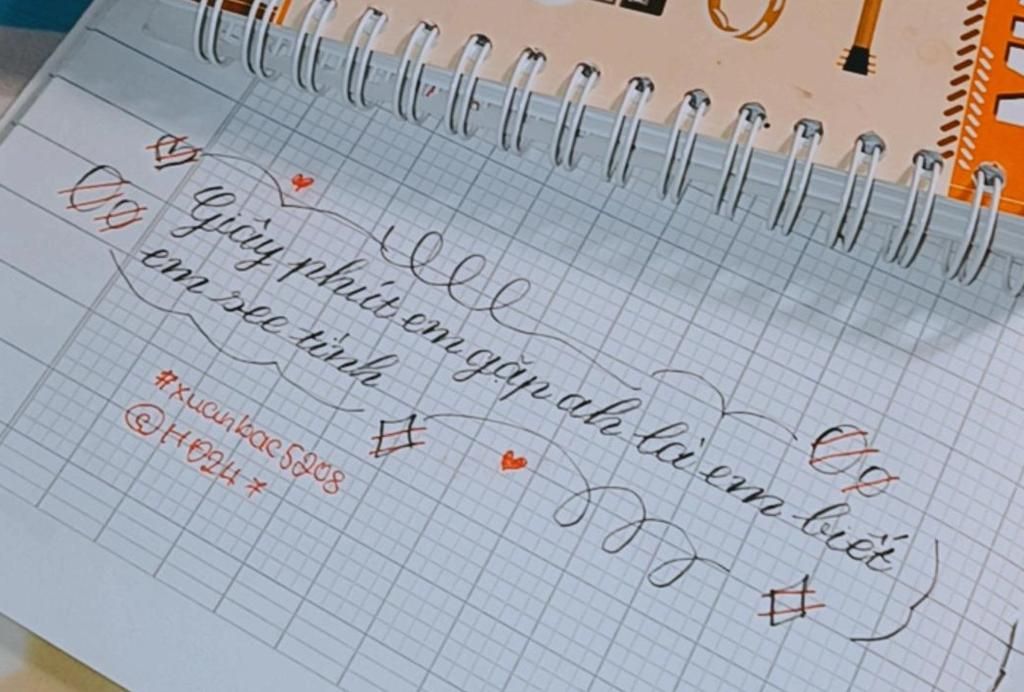 Giây phút em gặp ah là em biết
em see tình
#xuanbac5208
@HĐ24